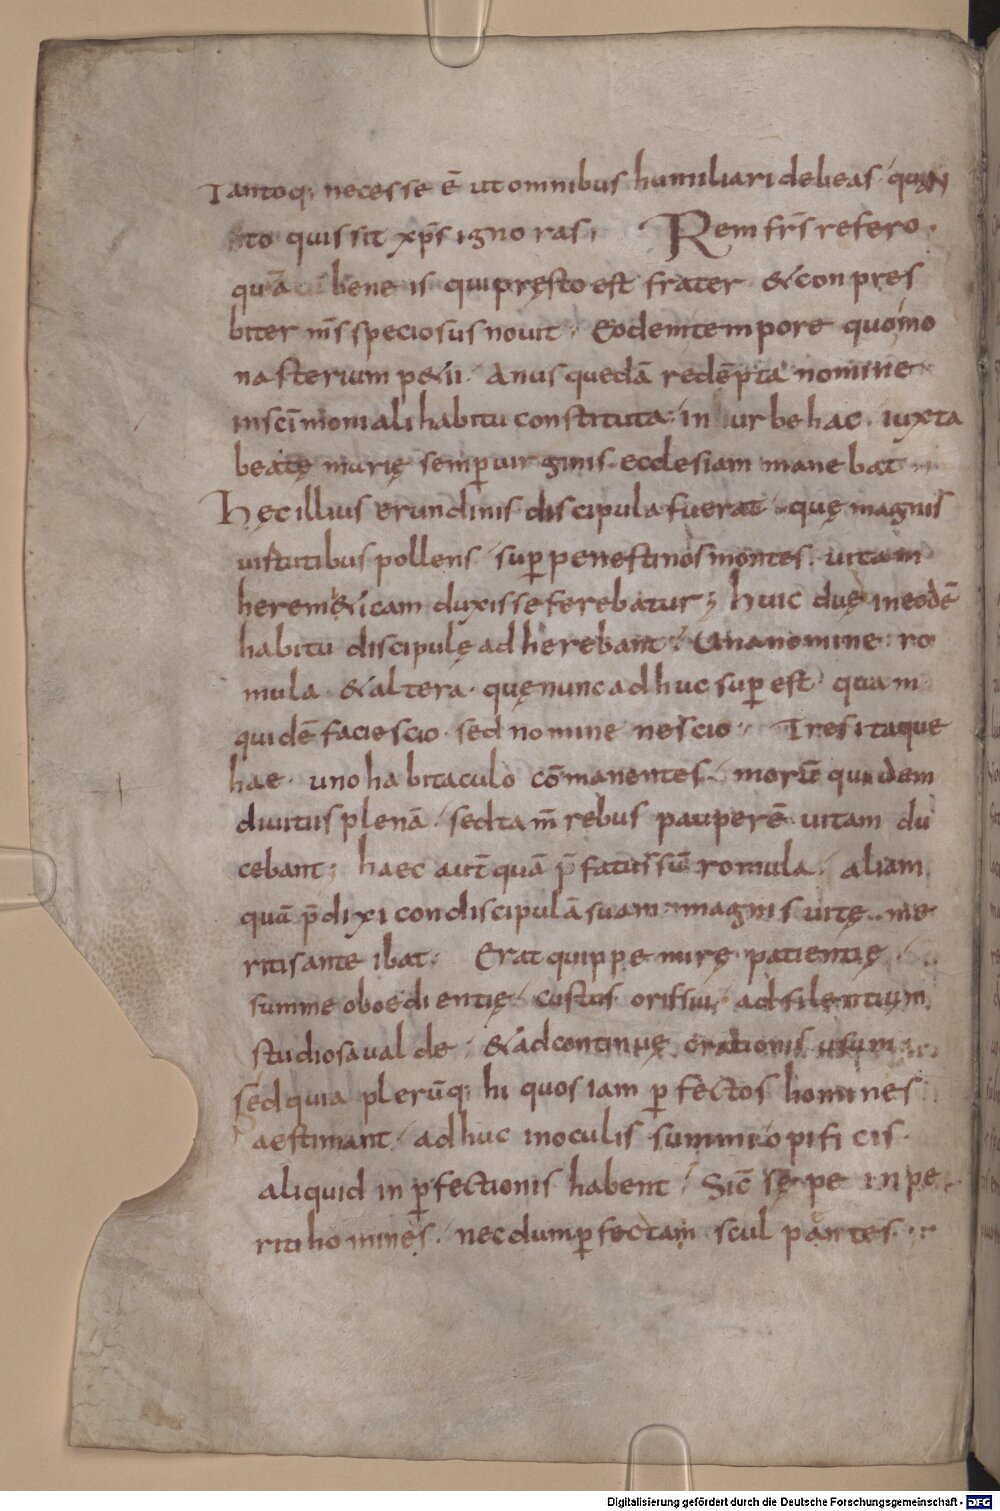 Tantoq; necesse ē ut omnibus humiliari debeas quan
to quis sit xp̄s ignoras; Rem fr̄s refero.
quā bene is qui pręsto est frater & conpres
biter m̄s speciosus nouit. Eodem tempore quo mo
nasterium petii. Anus quedā redēpta nomine
in sc̄imoniali habitu constituta. in urbe hac. iuxta
beatę marię semp̱ uirginis ecclesiam manebat
Hęc illius erundinis discipula fuerat. quę magnis
uirtutibus pollens sup̱ penestinos montes. uitam
heremeticam duxisse ferebatur; huic duę in eodē
habitu discipulę adherebant. Una nomine ro
mula & altera. quę nunc adhuc sup̱ est quam
quidē facie scio. sed nomine nescio. Tres itaque
hae. uno habitaculo cōmanentes. morū quidem
diuitiis plenā. sed tam̄ rebus pauperē uitam du
cebant; haec aut̄ quā p̄fatus sū romula. aliam
quā p̄dixi condiscipulā suam magnis uitę me
ritis ante ibat. Erat quippe mirę patientię
summe oboedientię. custus oris sui. ad silentium
studiosa ualde. & ad continuę orationis usum
sed quia plerūq; hi quos iam p̱fectos homines
aestimant. adhuc in oculis summi opificis.
aliquid inp̱fectionis habent. Sic̄ sępe inpe
riti homines. necdum p̱fectam sculpantes
Digitalisierung gefördert durch die Deutsche Forschungsgemeinschaft - DFG